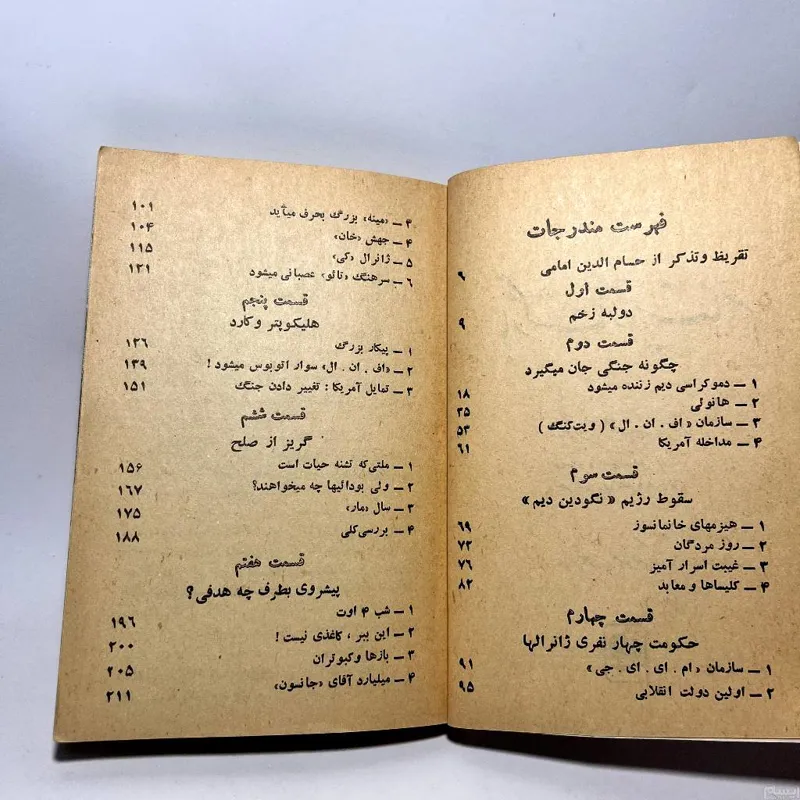 فهرست مندرجات
تقریظ وتذکر از حسام الدین امامی ۶
قسمت اول
دولبه زخم ۹
قسمت دوم
چگونه جنگی جان میگیرد
۱ – دموکراسی دیم زننده میشود ۱۸
۲ – هانوئی ۳۵
۳ – سازمان «اف . ان . ال» ( ویت‌کنگ ) ۵۳
۴ – مداخله آمریکا ۶۱
قسمت سوم
سقوط رژیم «نگودین دیم»
۱ – هیزمهای خانمانسوز ۶۹
۲ – روز مردگان ۷۲
۳ – غیبت اسرار آمیز ۷۶
۴ – کلیساها و معابد ۸۲
قسمت چهارم
حکومت چهار نفری ژانرالها
۱ – سازمان «ام . ای . ای . جی» ۹۱
۲ – اولین دولت انقلابی ۹۵
۳ – «مینه» بزرگ بحرف میآید ۱۰۱
۴ – جهش «خان» ۱۰۴
۵ – ژانرال «کی» ۱۱۵
۶ – سرهنگ «تائو» عصبانی میشود ۱۲۱
قسمت پنجم
هلیکوپتر وکارد
۱ – پیکار بزرگ ۱۲۶
۲ – «اف . ان . ال» سوار اتوبوس میشود ! ۱۳۹
۳ – تمایل آمریکا : تغییر دادن جنگ ۱۵۱
قسمت ششم
گریز از صلح
۱ – ملتی‌که تشنه حیات است ۱۵۶
۲ – ولی بودائیها چه میخواهند؟ ۱۶۷
۳ – سال «مار» ۱۷۵
۴ – بررسی‌کلی ۱۸۸
قسمت هفتم
پیشروی بطرف چه هدفی ؟
۱ – شب ۴ اوت ۱۹۶
۲ – این ببر ، کاغذی نیست ! ۲۰۰
۳ – بازها وکبوتران ۲۰۵
۴ – میلیارد آقای «جانسون» ۲۱۱
ایسام